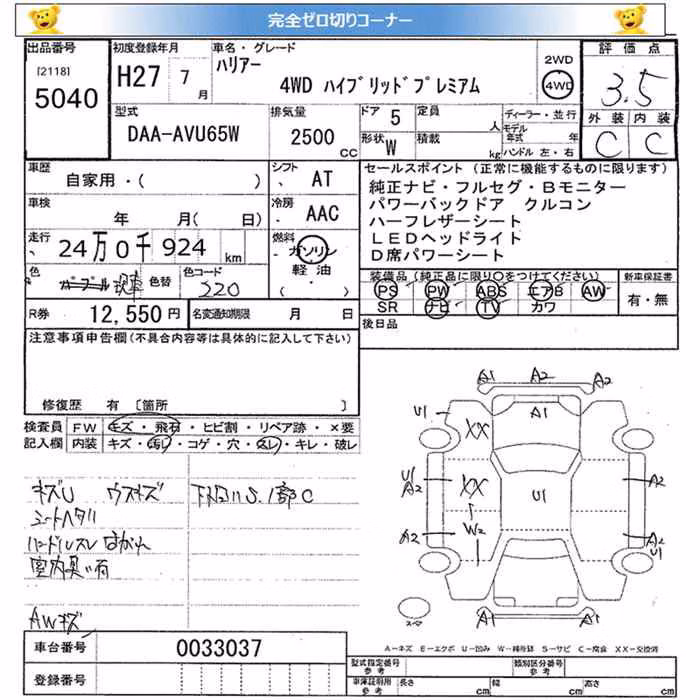 完全ゼロ切りコーナー
出品番号
[2118]
5040
初度登録年月
H27 7月
車名・グレード
ハリアー
4WD ハイブリッドプレミアム
2WD
4WD
評価点
3.5
外装 内装
C C
型式
DAA-AVU65W
排気量
2500 CC
ドア 5
形状 W
定員 人
積載 kg
ディーラー・並行
モデル年式 年
ハンドル 左・右
車歴
自家用・( )
シフト
、 AT
車検
年 月( 日)
冷房
、 AAC
走行
24万0千924 km
燃料
ガソリン
軽油
( ・ )
色
色替
色コード
220
R券 12,550円
名変通知期限 月 日
セールスポイント(正常に機能するものに限ります)
純正ナビ・フルセグ・Bモニター
パワーバックドア クルコン
ハーフレザーシート
LEDヘッドライト
D席パワーシート
装備品(純正品に限り○をつけてください)
PS PW ABS エアB AW
SR ナビ TV カワ
新車保証書
有・無
後日品
注意事項申告欄(不具合内容等は具体的に記入して下さい)
修復歴 有 〔箇所 〕
検査員記入欄
FW キズ・飛石・ヒビ割・リペア跡・×要
内装 キズ・汚レ・コゲ・穴・スレ・キレ・破レ
キズU ウスキズ
シートヘタリ
ハンドルスレ
室内臭い有
AWキズ
下廻りS.1部C
A1 A2 A2
U1 XX A1
U1 A2 XX U1 A2
A2 W2 A2 U1
スペア
A1 A2 A2
A-キズ E-エクボ U-凹み W-補修跡 S-サビ C-腐食 XX-交換済
車台番号 0033037
登録番号
型式指定番号 参考
類別区分番号 参考
車庫証明用 参考
長さ cm 幅 cm 高さ cm